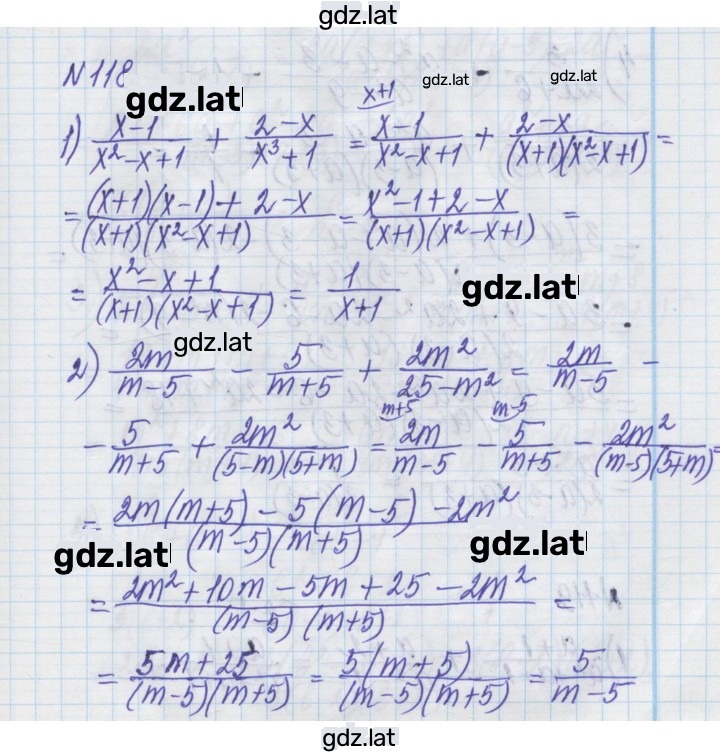 gdz.lat
N 118
gdz.lat gdz.lat gdz.lat
1) (x-1)/(x²-x+1) + (2-x)/(x³+1) = (x-1)/(x²-x+1) (x+1 + (2-x)/((x+1)(x²-x+1)) =
= ((x+1)(x-1)+2-x)/((x+1)(x²-x+1)) = (x²-1+2-x)/((x+1)(x²-x+1)) =
= (x²-x+1)/((x+1)(x²-x+1)) = 1/(x+1)
gdz.lat
gdz.lat
2) 2m/(m-5) - 5/(m+5) + 2m²/(25-m²) = 2m/(m-5) -
- 5/(m+5) + 2m²/((5-m)(5+m)) = 2m/(m-5) (m+5 - 5/(m+5) (m-5 - 2m²/((m-5)(5+m)) =
= (2m(m+5)-5(m-5)-2m²)/((m-5)(m+5))
gdz.lat gdz.lat
= (2m²+10m-5m+25-2m²)/((m-5)(m+5)) =
= (5m+25)/((m-5)(m+5)) = 5(m+5)/((m-5)(m+5)) = 5/(m-5)
gdz.lat